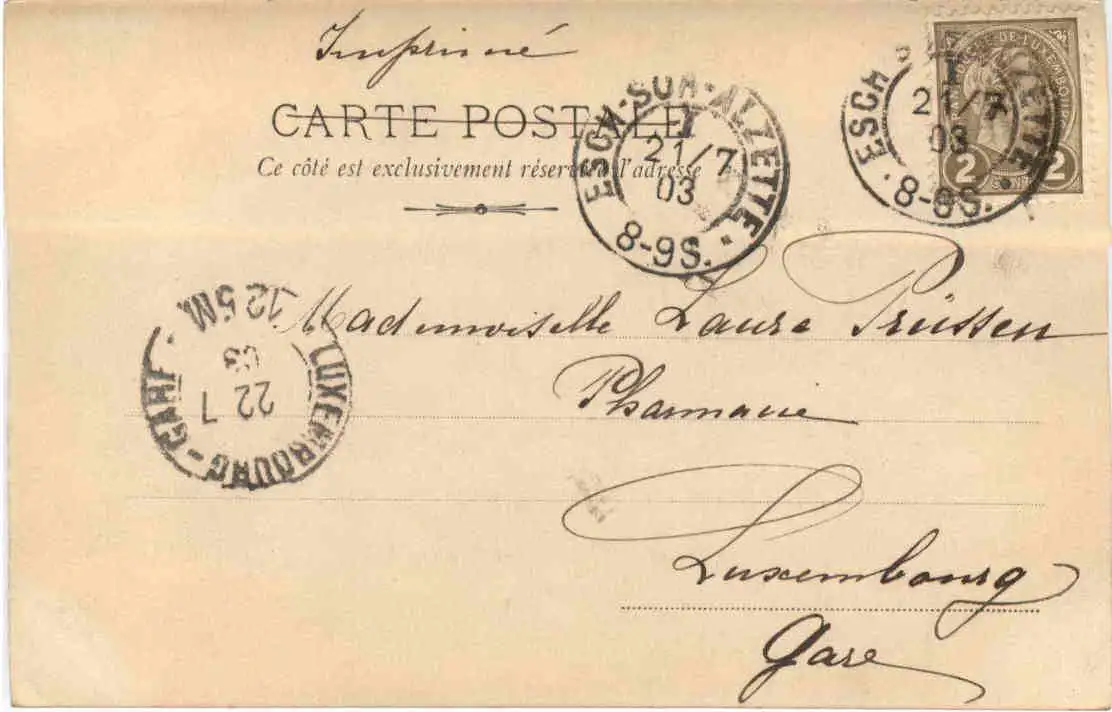 Imprimé
CARTE POSTALE
Ce côté est exclusivement réservé à l'adresse
ESCH-SUR-ALZETTE
21/7
03
8-9S.
ESCH-SUR-ALZETTE
21/7
03
8-9S.
DE LUXEMBOURG
2 2
LUXEMBOURG-GARE
22 7
03
12 5M.
Mademoiselle Laure Prüssen
Pharmacie
Luxembourg
Gare